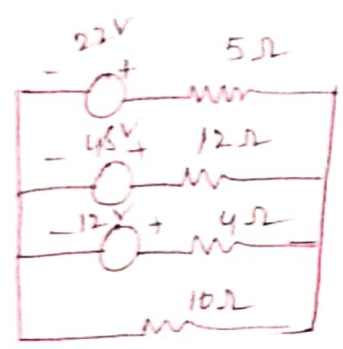 22V 5Ω
- +
45V 12Ω
- +
12V 4Ω
- +
10Ω